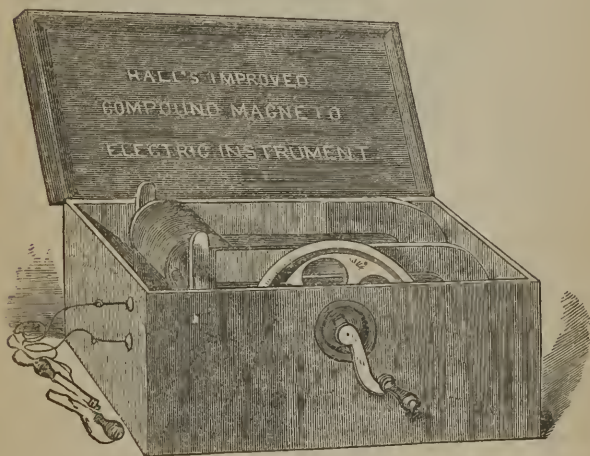 HALL'S IMPROVED
COMPOUND MAGNETO
ELECTRIC INSTRUMENT